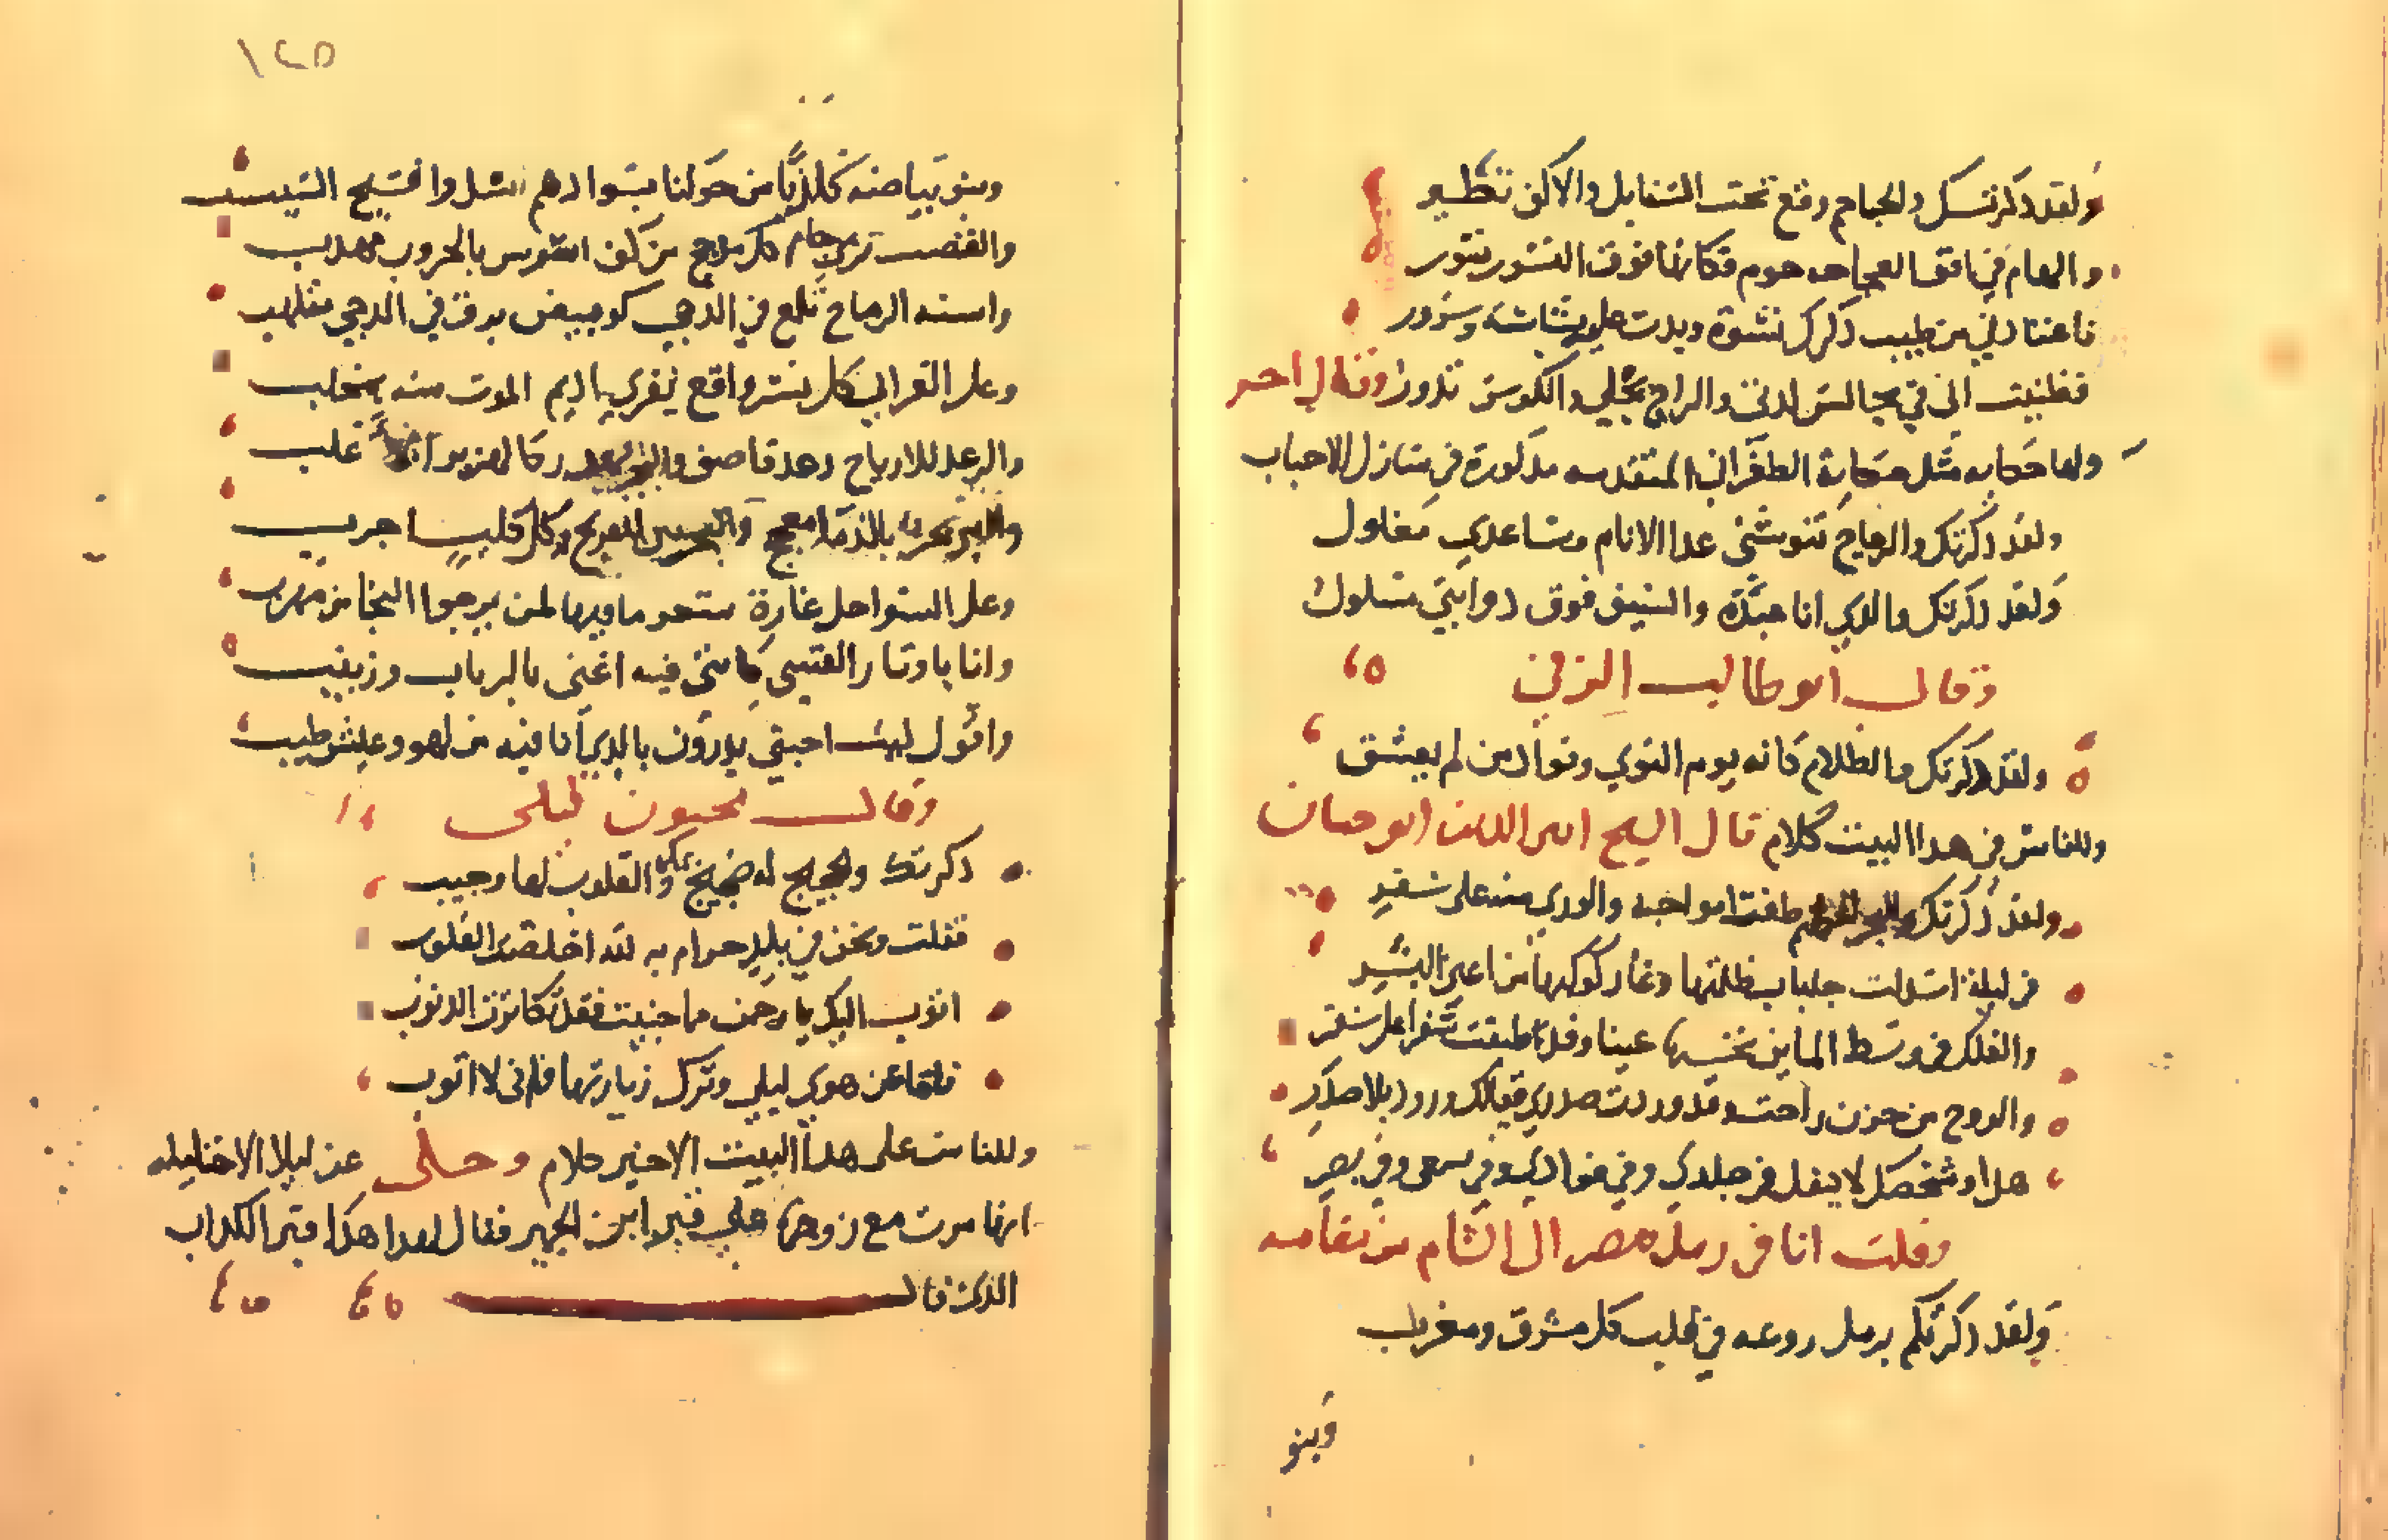 ولقد ذكرتك والجماجم وقع تحت السنابل والاكف تطير
والهام في افق العجاجه حوم فكانها فوق النسور نسور
فاعتادني من طيب ذكرك نشوة وبدت علي بشاشة وسرور
فظننت اني في مجالس لذتي والراح تجلي والكوس تدور وقال اخر
ولها حكايه مثل حكاية الطغراني المتقدمه مذكورة في منازل الاحباب
ولقد ذكرتك والرماح تنوشني عدا الانام وساعدي مغلول
ولقد ذكرتك والذي انا عبده والسيف فوق ذوابتي مسلول
وقال ابو طالب الرقي
ولقد ذكرتك والظلام كانه يوم النوي وفواد من لم يعشق
وللناس في هذا البيت كلام قال الشيخ اثير الدين ابو حيان
ولقد ذكرتك والبحر الخضم طغت امواجه والوري منه على سفر
في ليلة اسدلت جلباب ظلمتها وغار كوكبها من اعين البشر
والفلك في وسط الماين تحسبها عينا وقد اطبقت شفرا على شفر
والروح من حزن راحت وقد وردت صدري فيالك ورود بلا صدر
هذا وشخصك لا ينفك في جلدي وفي فوادي وفي سمعي وفي بصر
وقلت انا في رملة مصر الى الشام من مقامه
ولقد ذكرتكم برمل روعه في قلب كل مشرق ومغرب
وبنو
١٢٥
وبنو بياضه كلذبا من حولنا بسوادهم نسلوا قسيح السبسب
والقضب ترمي كل من كف اشوس بالحروب مهذب
واسنه الرماح تلمع في الدجي كوميض برق في الدجي متلهب
وعلى القراب كل نسر واقع يفري باديم الموت منه بمخلب
والرعد للارياح رعد قاصف اغلب
بالذما وكل قليب اجرب
وعلى السواحل غارة ستحو ما ويرها لمن يرجوا النجا من مهرب
وانا باوتار القسي كانني فيه اغني بالرباب وزينب
واقول ليت احبتي يدرون بالذي انا فيه من لهو وعيش طيب
وقال مجنون ليلى
ذكرتك والحجيج له ضجيج بمكه والقلوب لها وجيب
فقلت ونحن في بلد حرام به لله اخلصت القلوب
اتوب اليك يا رحمن مما جنيت فقد تكاثرت الذنوب
فاما عن هوي ليلي وترك زيارتها فاني لا اتوب
وللناس على هذا البيت الاخير كلام وحكى عن ليلا الاخيليه
انها مرت مع زوجها على قبر ابن الحمير فقال لها هذا قبر الكذاب
الذي قال